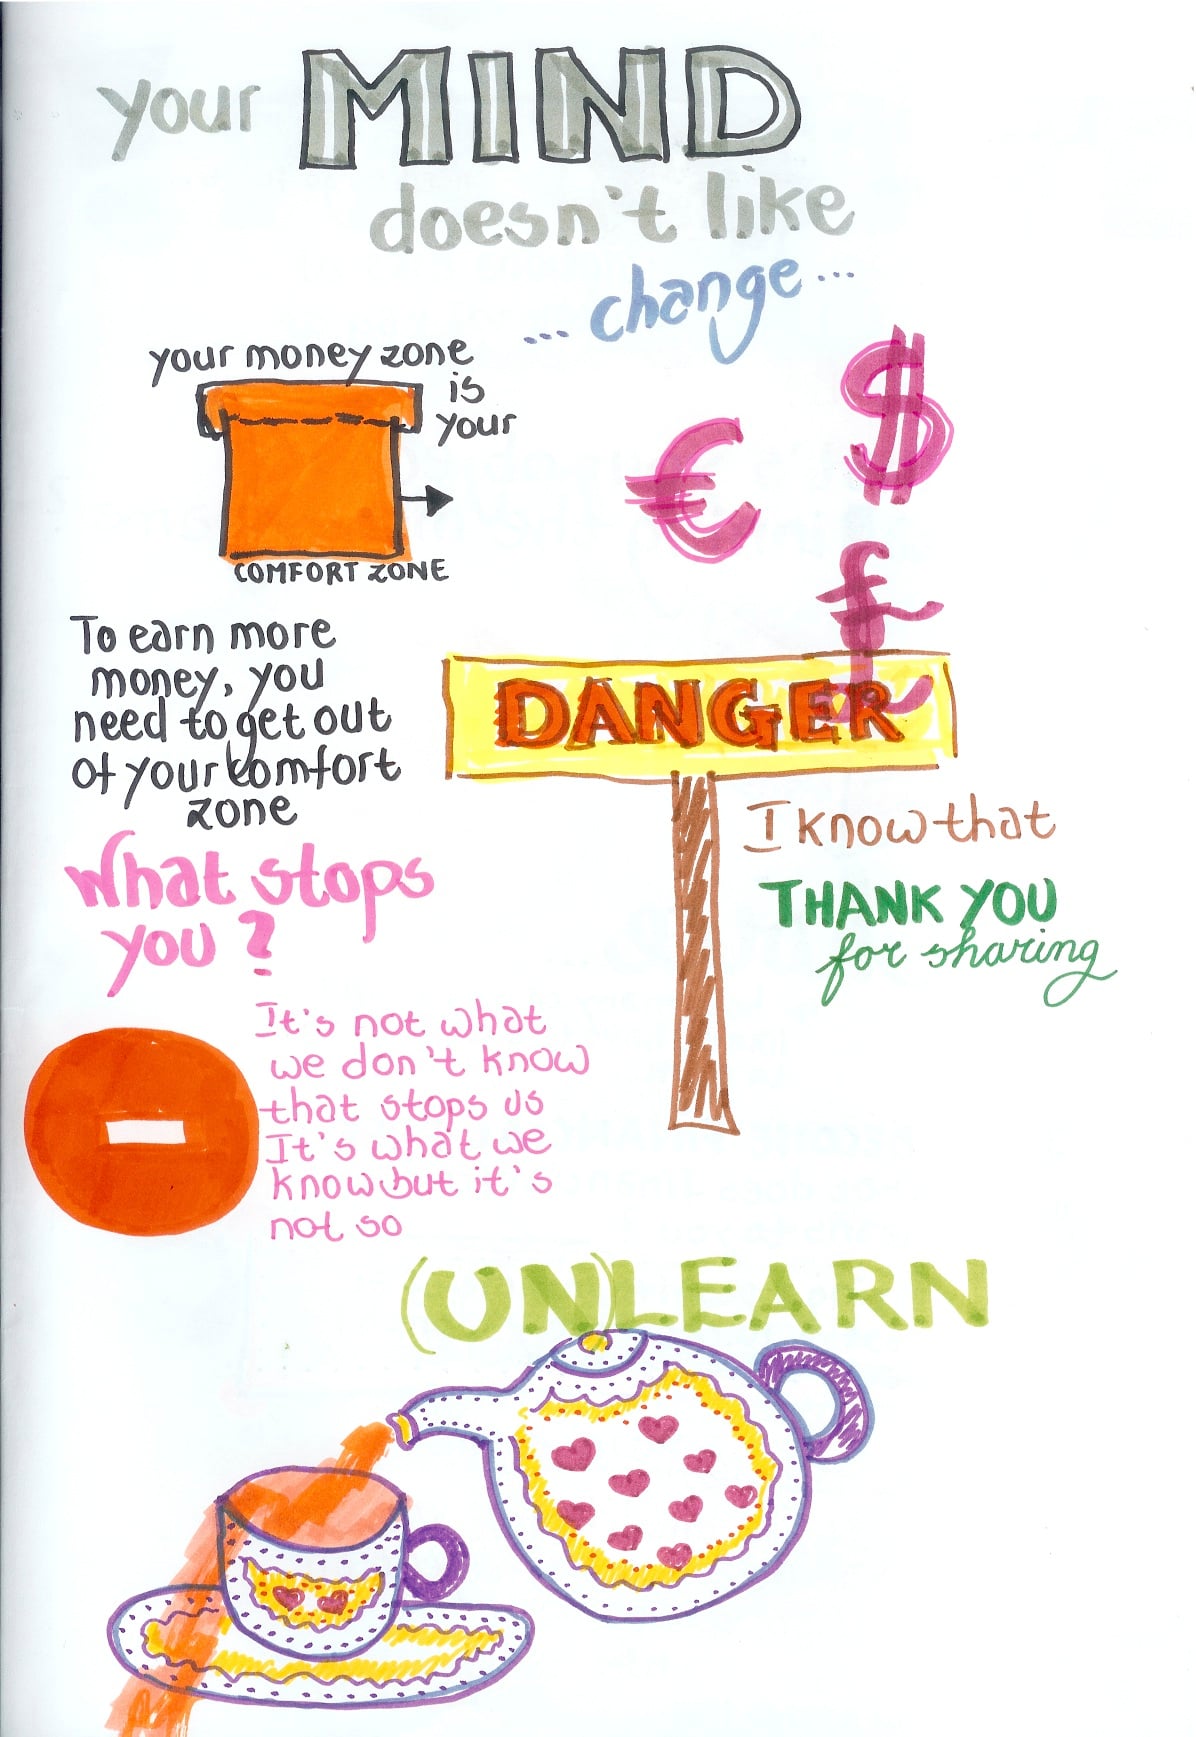 your MIND
doesn't like
... change ...
your money zone
is
your
COMFORT ZONE
$
€
£
To earn more
money, you
need to get out
of your comfort
zone
DANGER
I know that
THANK YOU
for sharing
What stops
you?
It's not what
we don't know
that stops us
It's what we
know but it's
not so
(UN)LEARN